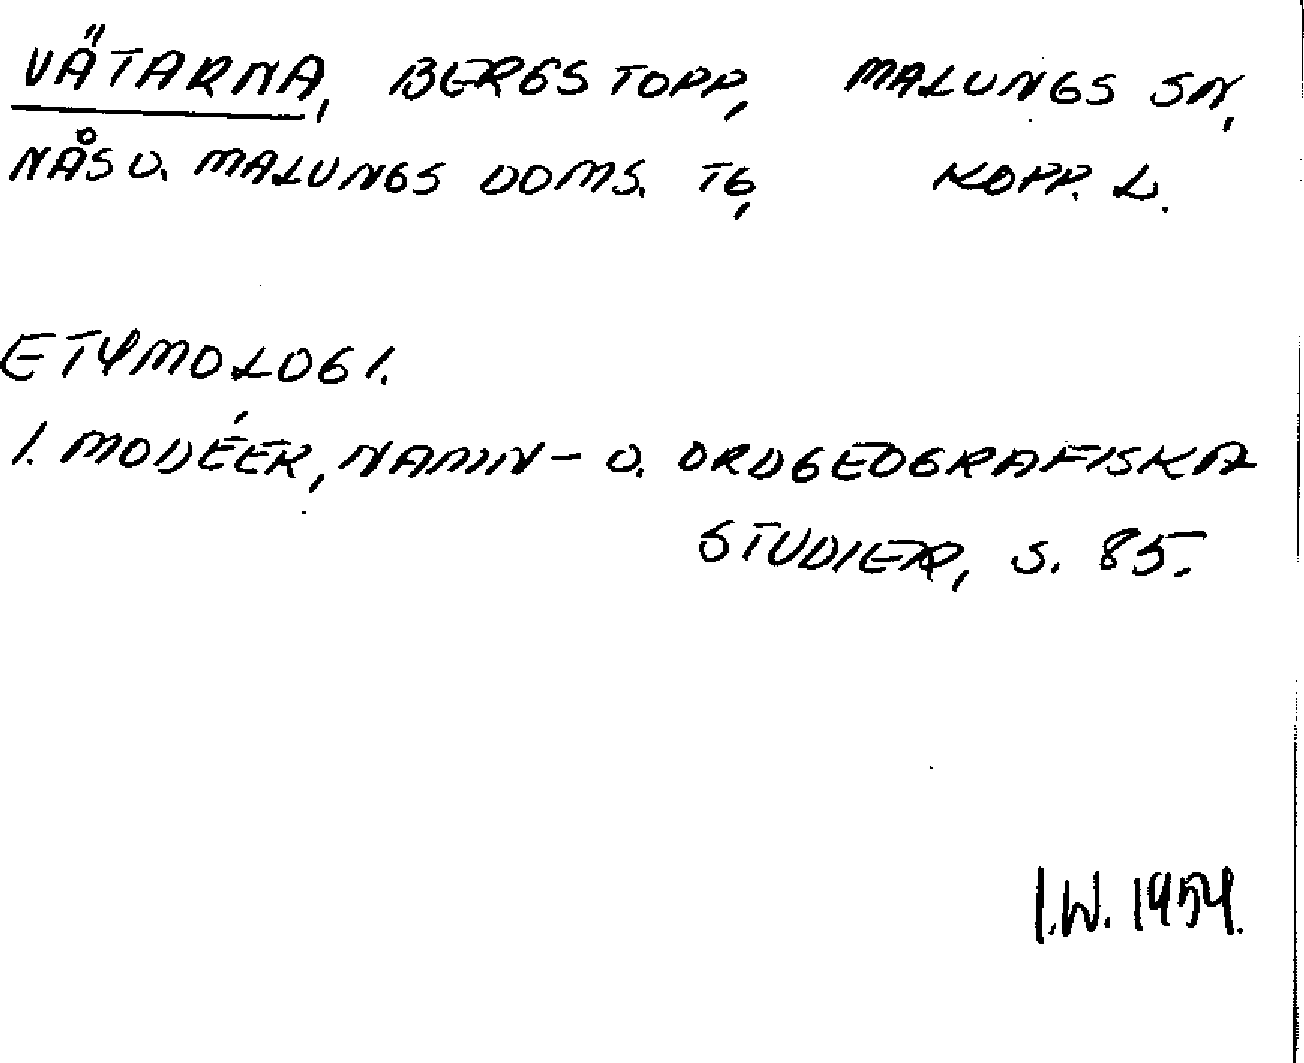 VÄTARNA, BERGSTOPP, MALUNGS SN,
NÅS O. MALUNGS DOMS. TG, KOPP. L.
ETYMOLOGI.
I. MODÉER, NAMN- O. ORDGEOGRAFISKA
STUDIER, S. 85.
I.W. 1954.